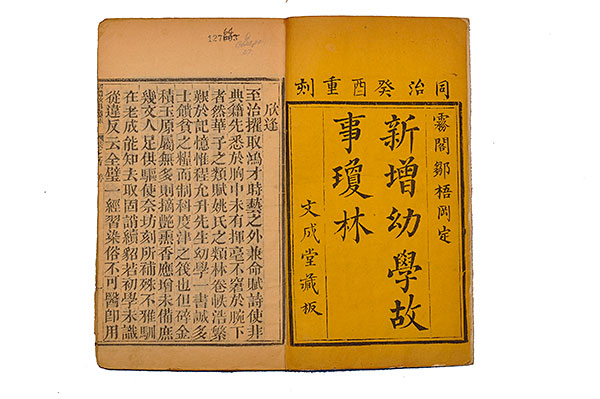 同治癸酉重刻
霧閣鄒梧岡定
新增幼學故
事瓊林
文成堂藏板
欣逢
至治擢取鴻才時藝之外兼命賦詩使非
典籍先悉於胸中未有揮毫不窘於腕下
者然華子之類賦姚氏之類林卷帙浩繁
艱於記憶惟程允升先生幼學一書誠多
士饋貧之糧而制科度津之筏也但碎金
積玉原屬無多則摘艷熏香應增未備庶
幾文人足供驅使奈坊刻所補殊不雅馴
在老成能知去取固誚續貂若初學未識
從違反云全璧一經習染俗不可醫卽用